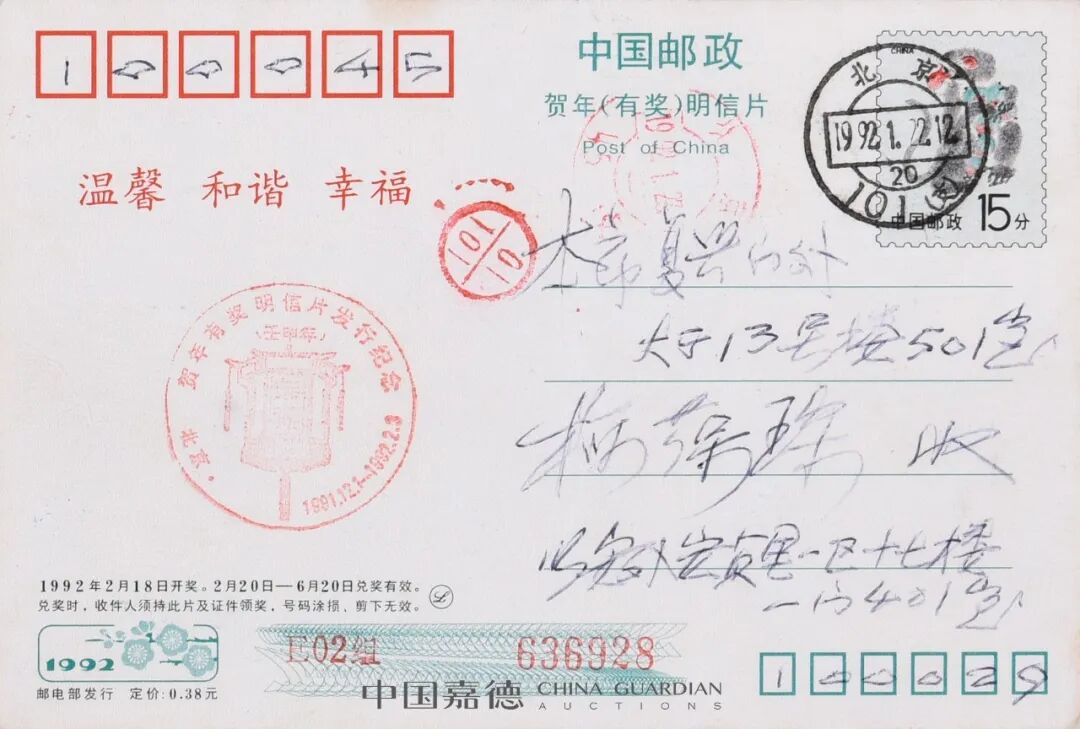 100045
中国邮政
贺年(有奖)明信片
Post of China
CHINA
中国邮政 15分
北京
1992.1.22.12
20
101(支)
温馨 和谐 幸福
01
101
贺年有奖明信片发行纪念
(壬申年)
北京
1991.12.1—1992.2.3
复兴门外
大厅13号楼501室
收
安贞里一区十七楼
一门401室
1992年2月18日开奖。2月20日—6月20日兑奖有效。
兑奖时,收件人须持此片及证件领奖,号码涂损、剪下无效。
1992
E02组 636928
邮电部发行 定价:0.38元
中国嘉德 CHINA GUARDIAN
AUCTIONS
100029